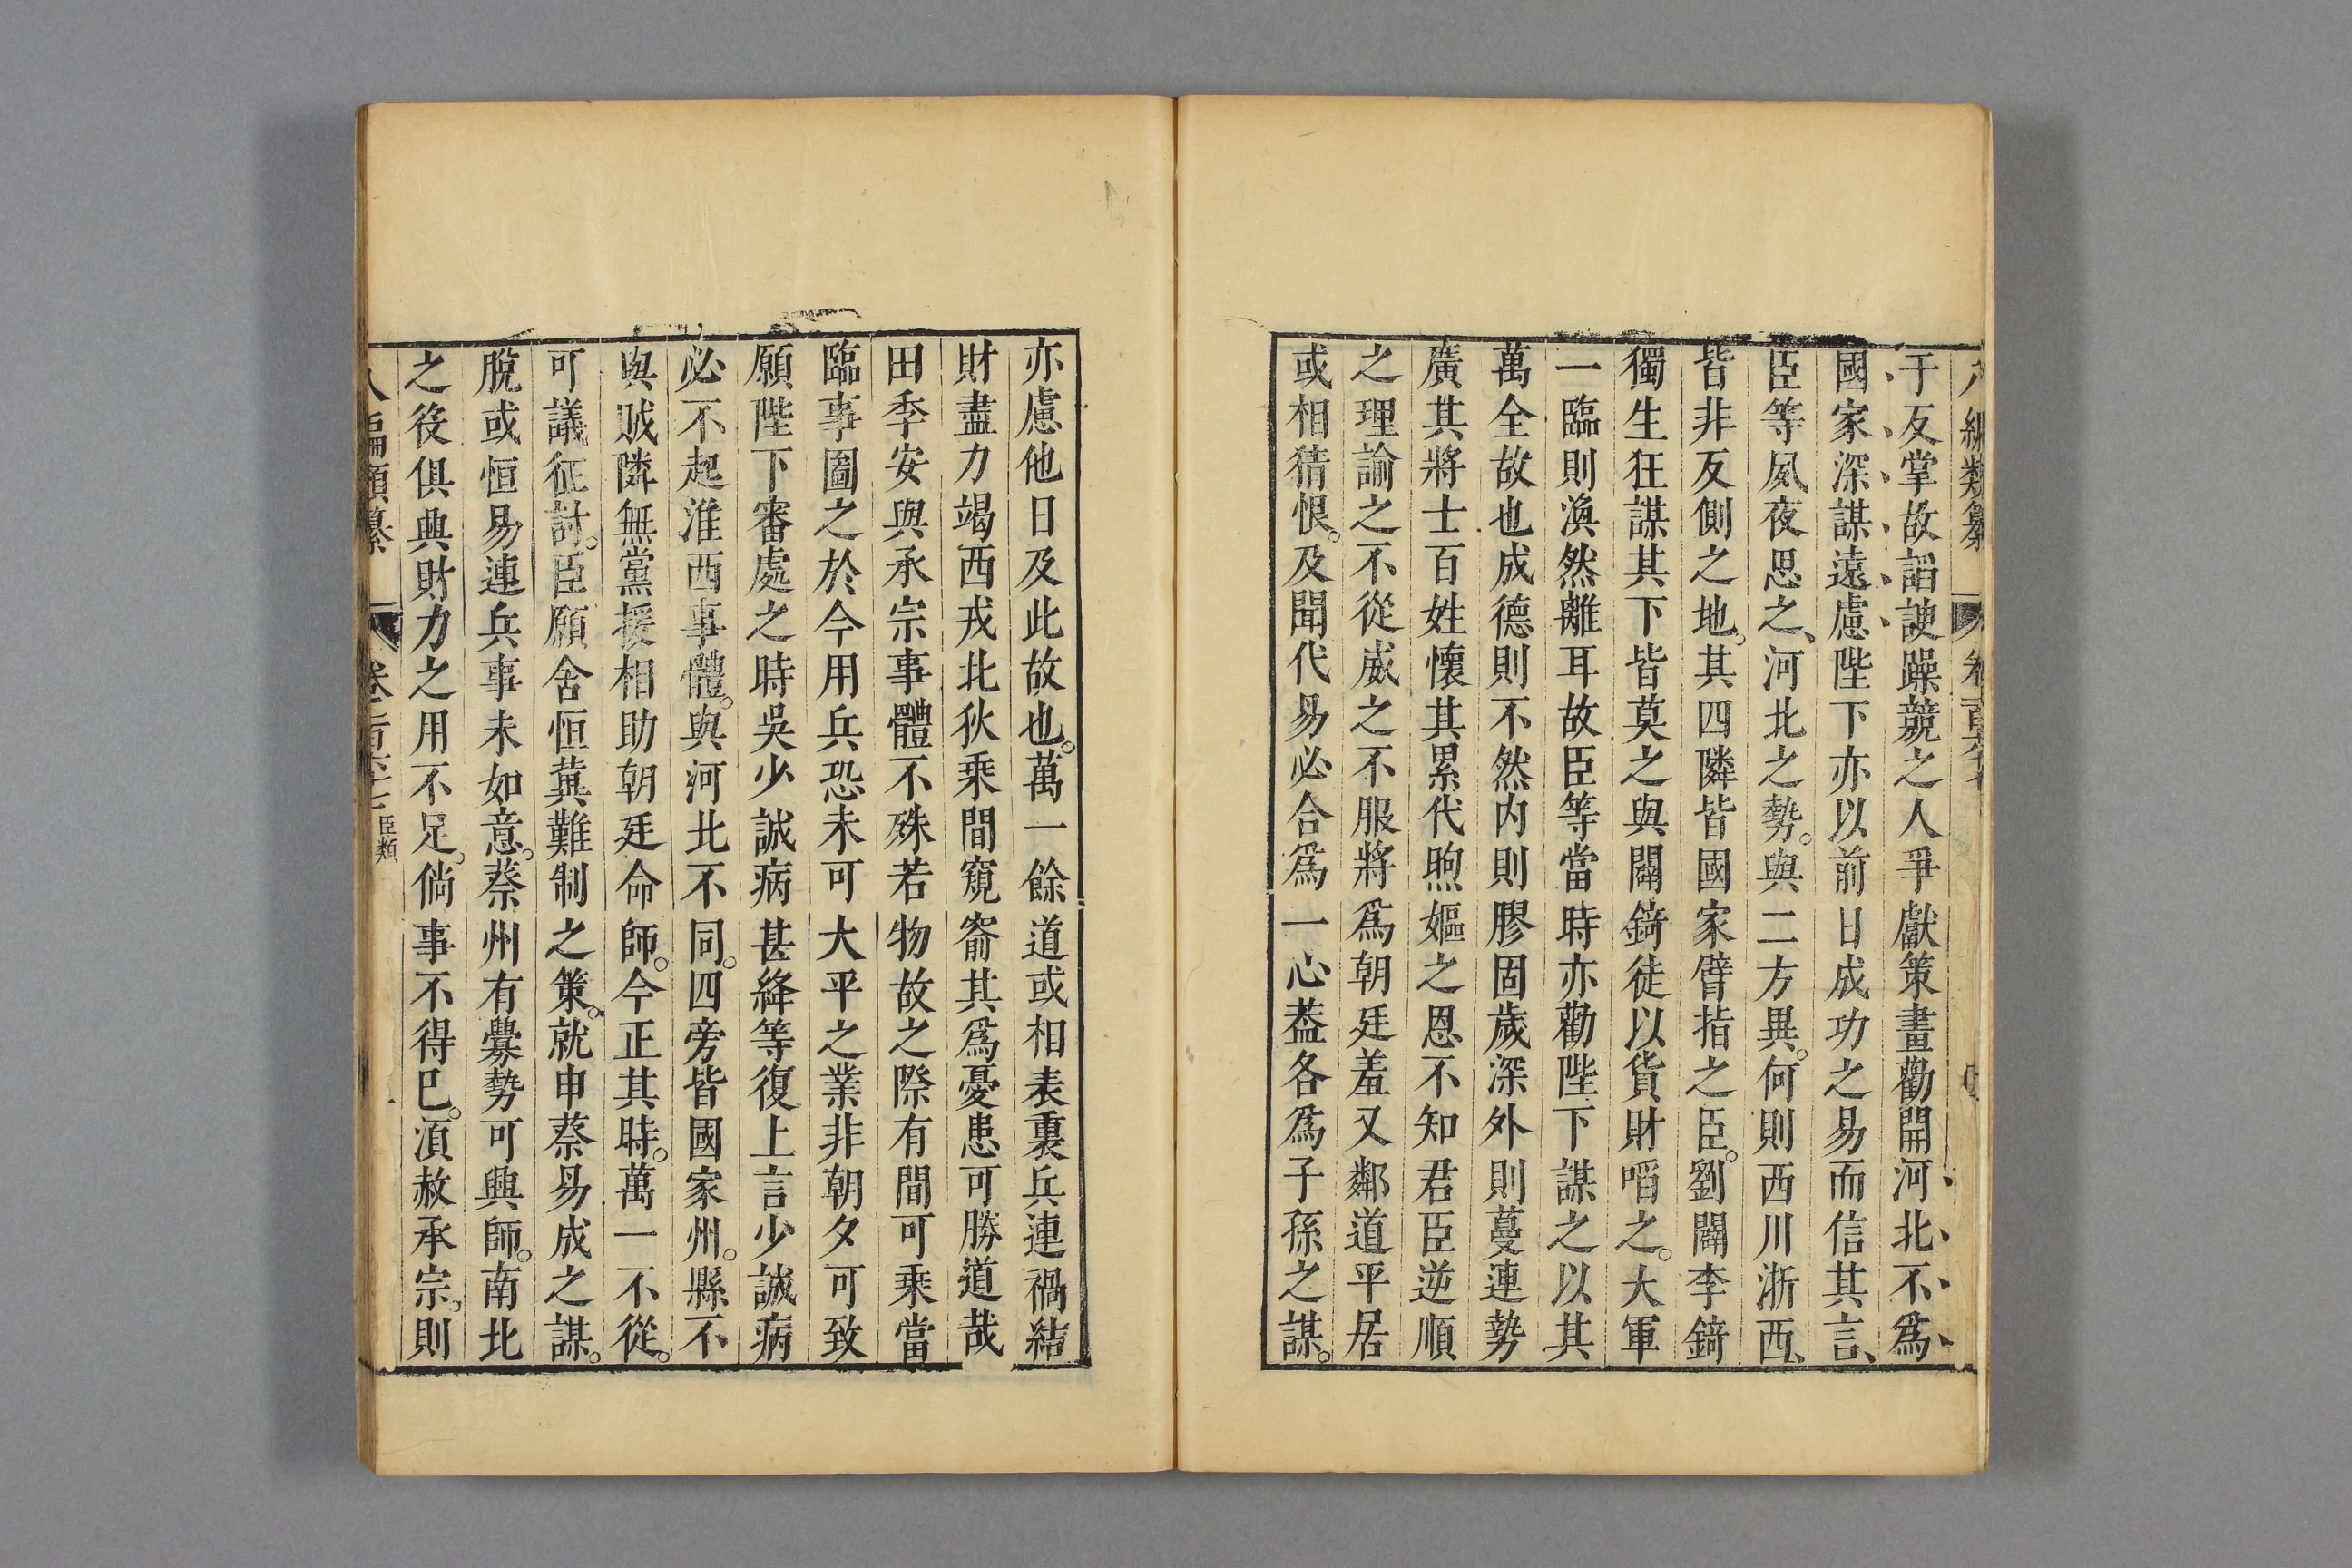 八編類纂
于反掌故謟諛躁競之人爭獻策畫勸開河北不爲
國家深謀遠慮陛下亦以前日成功之易而信其言
臣等夙夜思之河北之勢與二方異何則西川浙西
皆非反側之地其四隣皆國家臂指之臣劉闢李錡
獨生狂謀其下皆莫之與闢錡徒以貨財啗之大軍
一臨則渙然離耳故臣等當時亦勸陛下謀之以其
萬全故也成德則不然内則膠固歲深外則蔓連勢
廣其將士百姓懷其累代煦嫗之恩不知君臣逆順
之理諭之不從威之不服將爲朝廷羞又鄰道平居
或相猜恨及聞代易必合爲一心葢各爲子孫之謀
亦慮他日及此故也萬一餘道或相表裏兵連禍結
財盡力竭西戎北狄乘間窺窬其爲憂患可勝道哉
田季安與承宗事體不殊若物故之際有間可乘當
臨事圖之於今用兵恐未可大平之業非朝夕可致
願陛下審處之時吳少誠病甚絳等復上言少誠病
必不起淮西事體與河北不同四旁皆國家州縣不
與賊隣無黨援相助朝廷命師今正其時萬一不從
可議征討臣願舍恒冀難制之策就申蔡易成之謀
脫或恒易連兵事未如意蔡州有釁勢可興師南北
之後俱典財力之用不足倘事不得巳湏赦承宗則
八編類纂 臣類